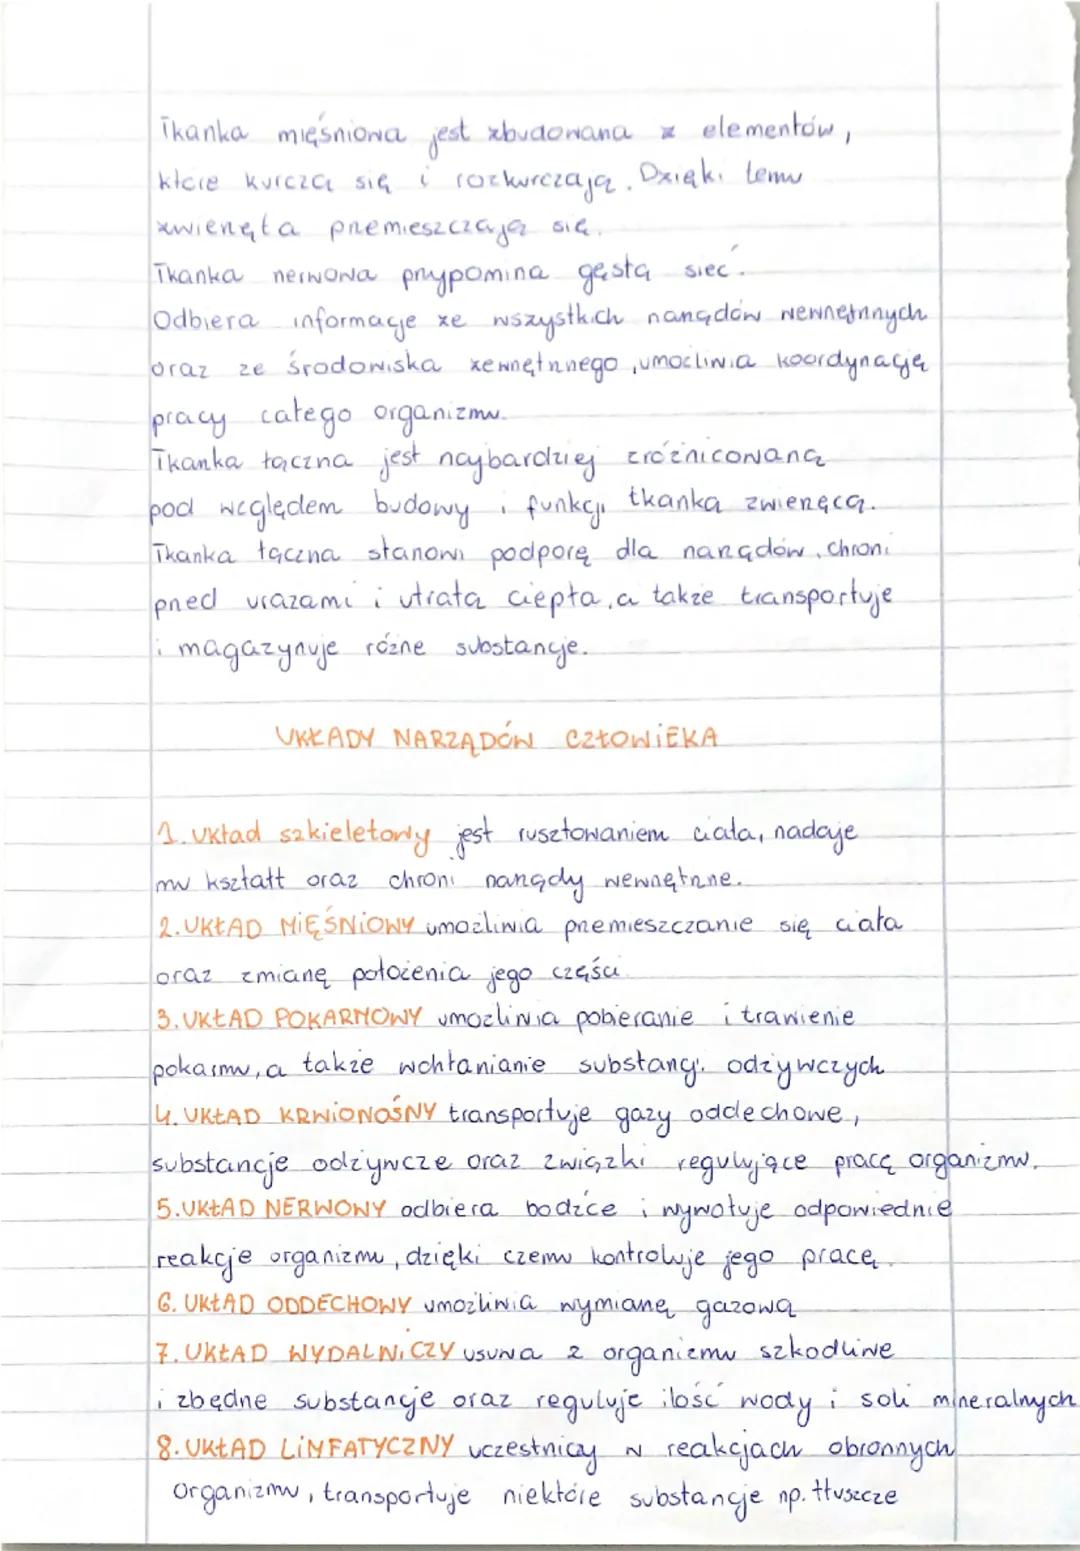 Tkanka mięśniowa jest zbudowana z elementów,
które kurczą się i rozkurczają. Dzięki temu
zwierzęta przemieszczają się.
Tkanka nerwowa przypomina gęstą sieć.
Odbiera informacje ze wszystkich narządów wewnętrznych
oraz ze środowiska zewnętrznego, umożliwia koordynację
pracy całego organizmu.
Tkanka łączna jest najbardziej zróżnicowaną
pod względem budowy i funkcji tkanką zwierzęcą.
Tkanka łączna stanowi podporę dla narządów, chroni
przed urazami i utratą ciepła, a także transportuje
i magazynuje różne substancje.
UKŁADY NARZĄDÓW CZŁOWIEKA
1. Układ szkieletowy jest rusztowaniem ciała, nadaje
mu kształt oraz chroni narządy wewnętrzne.
2. UKŁAD MIĘŚNIOWY umożliwia przemieszczanie się ciała
oraz zmianę położenia jego części.
3. UKŁAD POKARMOWY umożliwia pobieranie i trawienie
pokarmu, a także wchłanianie substancji odżywczych
4. UKŁAD KRWIONOŚNY transportuje gazy oddechowe,
substancje odżywcze oraz związki regulujące pracę organizmu.
5. UKŁAD NERWOWY odbiera bodźce i wywołuje odpowiednie
reakcje organizmu, dzięki czemu kontroluje jego pracę.
6. UKŁAD ODDECHOWY umożliwia wymianę gazową
7. UKŁAD WYDALNICZY usuwa z organizmu szkodliwe
i zbędne substancje oraz reguluje ilość wody i soli mineralnych
8. UKŁAD LIMFATYCZNY uczestniczy w reakcjach obronnych
organizmu, transportuje niektóre substancje np. tłuszcze